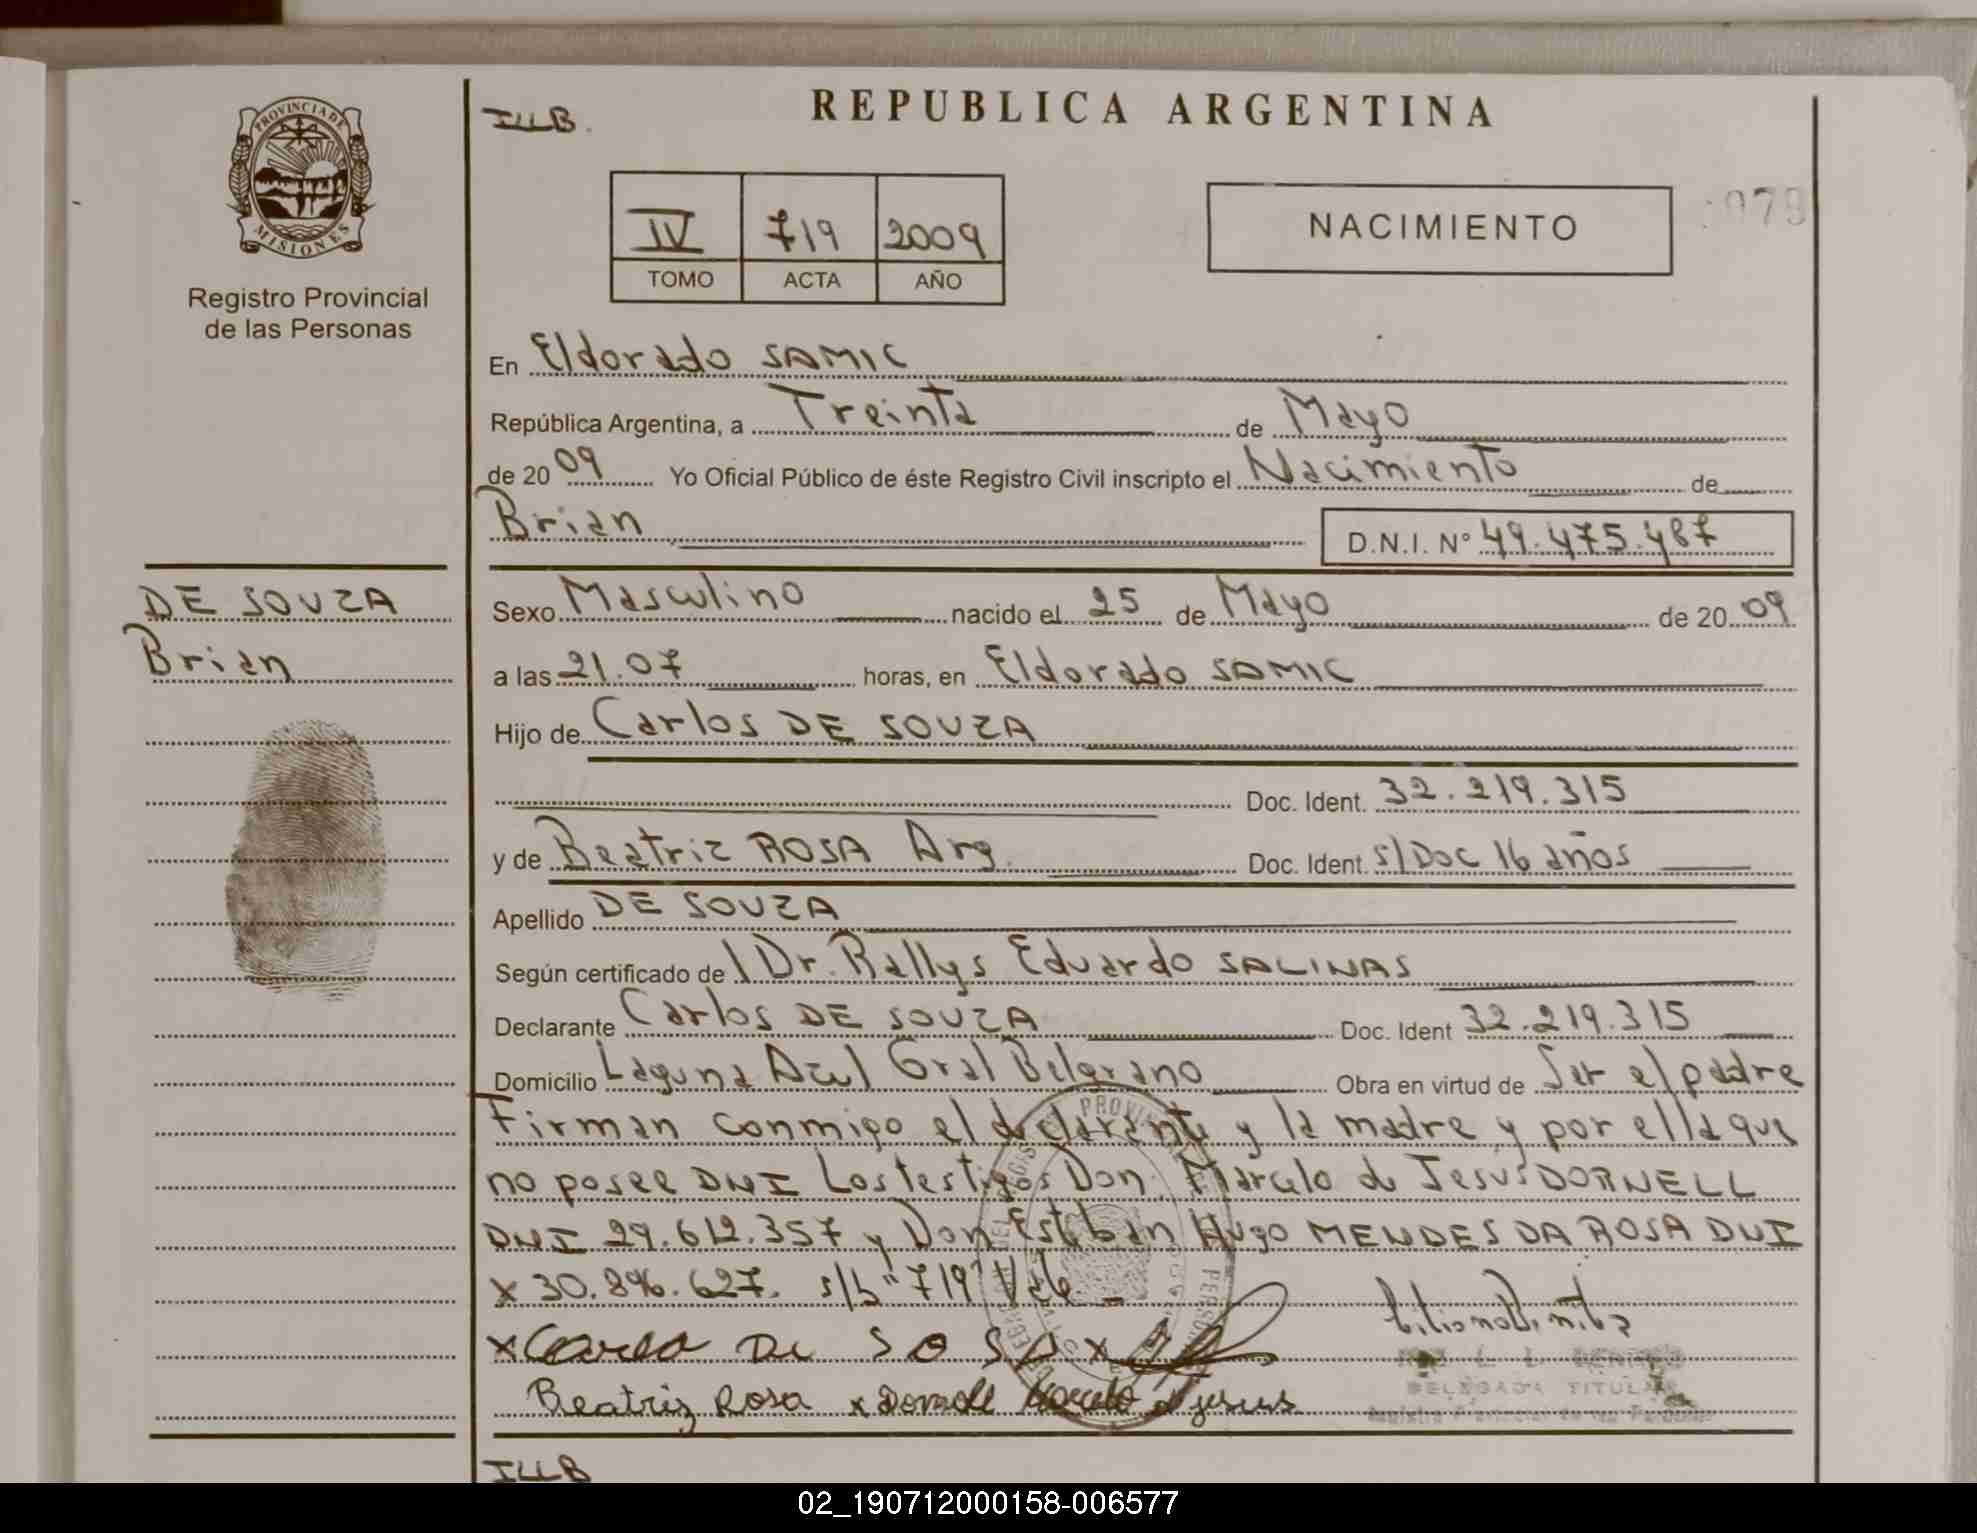 PROVINCIA DE
MISIONES
Registro Provincial
de las Personas
ILLB.
REPUBLICA ARGENTINA
IV 719 2009
TOMO ACTA AÑO
NACIMIENTO
En Eldorado SAMIC
República Argentina, a Treinta de Mayo
de 2009 Yo Oficial Público de éste Registro Civil inscripto el Nacimiento de
Brian D.N.I. N° 49.475.487
DE SOUZA
Brian
Sexo Masculino nacido el 25 de Mayo de 2009
a las 21.07 horas, en Eldorado SAMIC
Hijo de Carlos DE SOUZA
Doc. Ident. 32.219.315
y de Beatriz ROSA Arg. Doc. Ident. s/Doc 16 años
Apellido DE SOUZA
Según certificado de l Dr. Rallys Eduardo SALINAS
Declarante Carlos DE SOUZA Doc. Ident 32.219.315
Domicilio Laguna Azul Gral Belgrano Obra en virtud de Ser el padre
Firman conmigo el declarante y la madre y por ella que
no posee DNI Los testigos Don. Marcelo de Jesús DORNELL
DNI 29.612.357 y Don Esteban Hugo MENDES DA ROSA DNI
x 30.896.627. s/b "719" Vale
x Carlo De SOSA x
Beatriz Rosa x Dornell Marcelo d jesus
DELEGADA TITULAR
ILLB
02_190712000158-006577